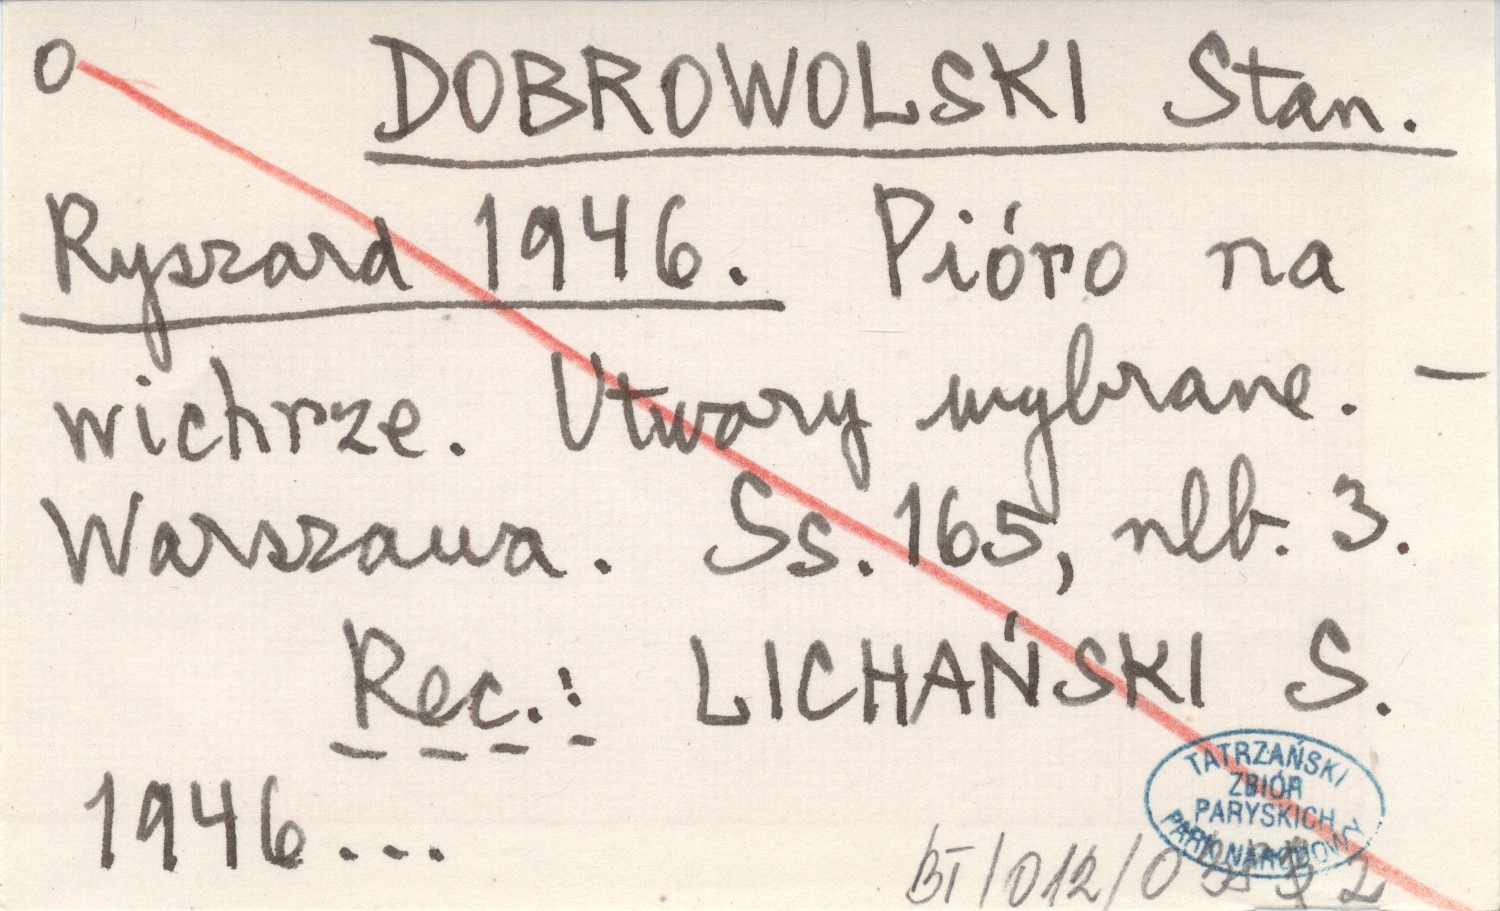 O DOBROWOLSKI Stan.
Ryszard 1946. Pióro na
wichrze. Utwory wybrane. –
Warszawa. Ss. 165, nlb. 3.
Rec.: LICHAŃSKI S.
1946...
TATRZAŃSKI
ZBIÓR
PARYSKICH
PARK NARODOWY
BT/012/0